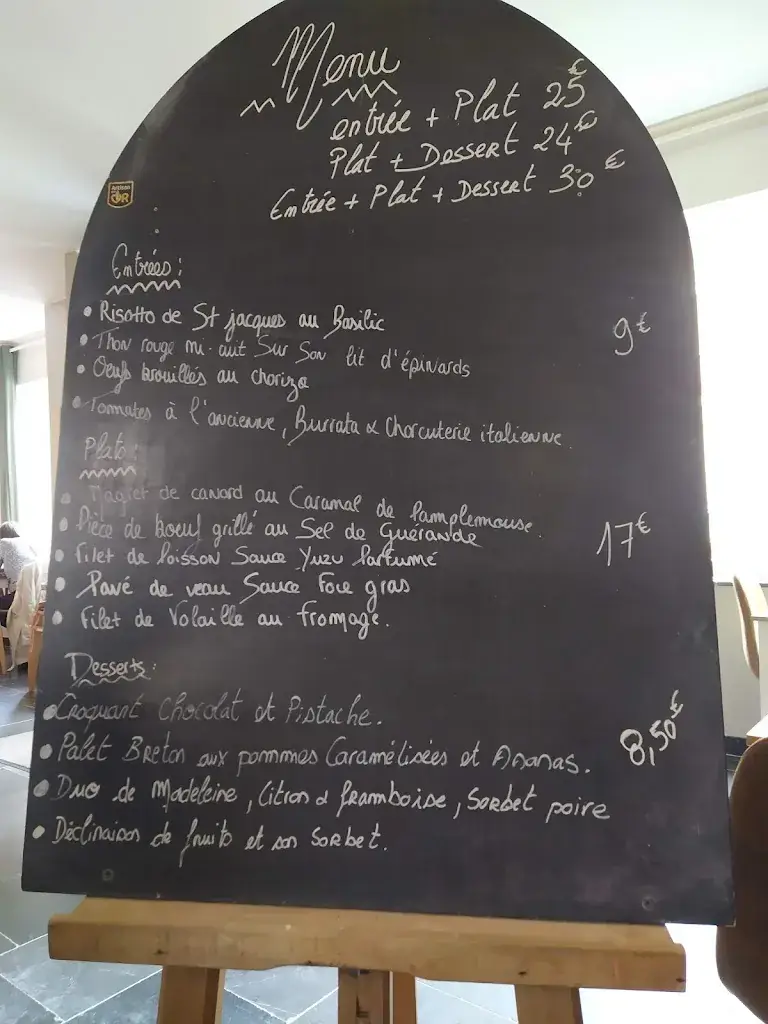 Menu
entrée + Plat 25€
Plat + Dessert 24€
Entrée + Plat + Dessert 30€
Artisan
en OR
Entrées :
• Risotto de St jacques au Basilic
9€
• Thon rouge mi-cuit Sur Son lit d'épinards
• Oeufs brouillés au chorizo
• Tomates à l'ancienne, Burrata & Charcuterie italienne
Plats :
• Magret de canard au Caramel de Pamplemousse.
• Pièce de boeuf grillé au Sel de Guérande
17€
• Filet de Poisson Sauce Yuzu Parfumé
• Pavé de veau Sauce Foie gras
• Filet de Volaille au fromage.
Desserts :
• Croquant Chocolat et Pistache.
• Palet Breton aux pommes Caramélisées et Ananas.
8,50€
• Duo de Madeleine, Citron & framboise, Sorbet poire
• Déclinaison de fruits et son Sorbet.